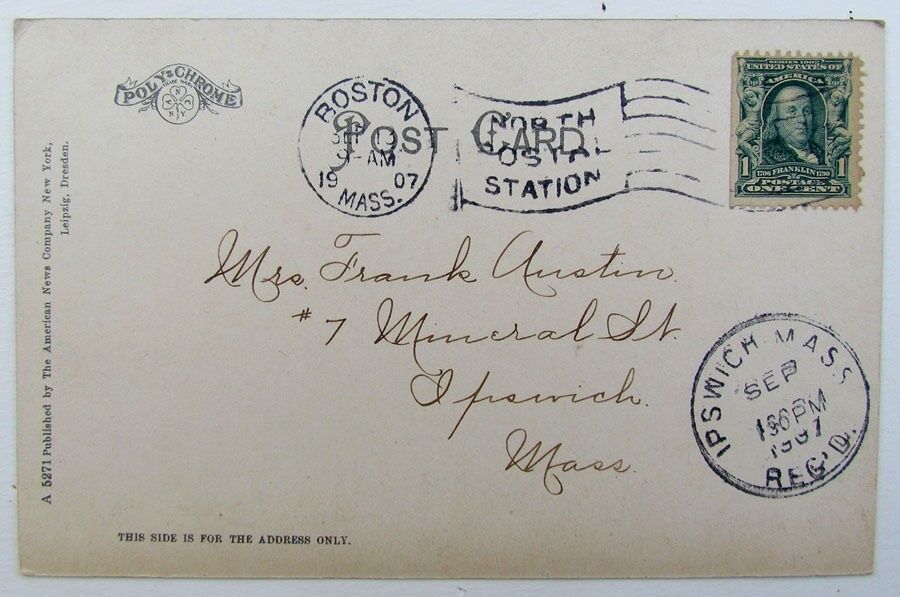 POLY-CHROME
TRADE MARK
N
A
N
N Y
POST CARD
BOSTON
SEP 13
9-AM
19 07
MASS.
NORTH
POSTAL
STATION
SERIES 1902
UNITED STATES OF
AMERICA
1 1
1706 FRANKLIN 1790
POSTAGE
ONE CENT
A 5271 Published by The American News Company New York,
Leipzig, Dresden.
Mrs. Frank Austin.
# 7 Mineral St.
Ipswich.
Mass.
IPSWICH MASS
SEP
PM
1907
REC'D.
THIS SIDE IS FOR THE ADDRESS ONLY.